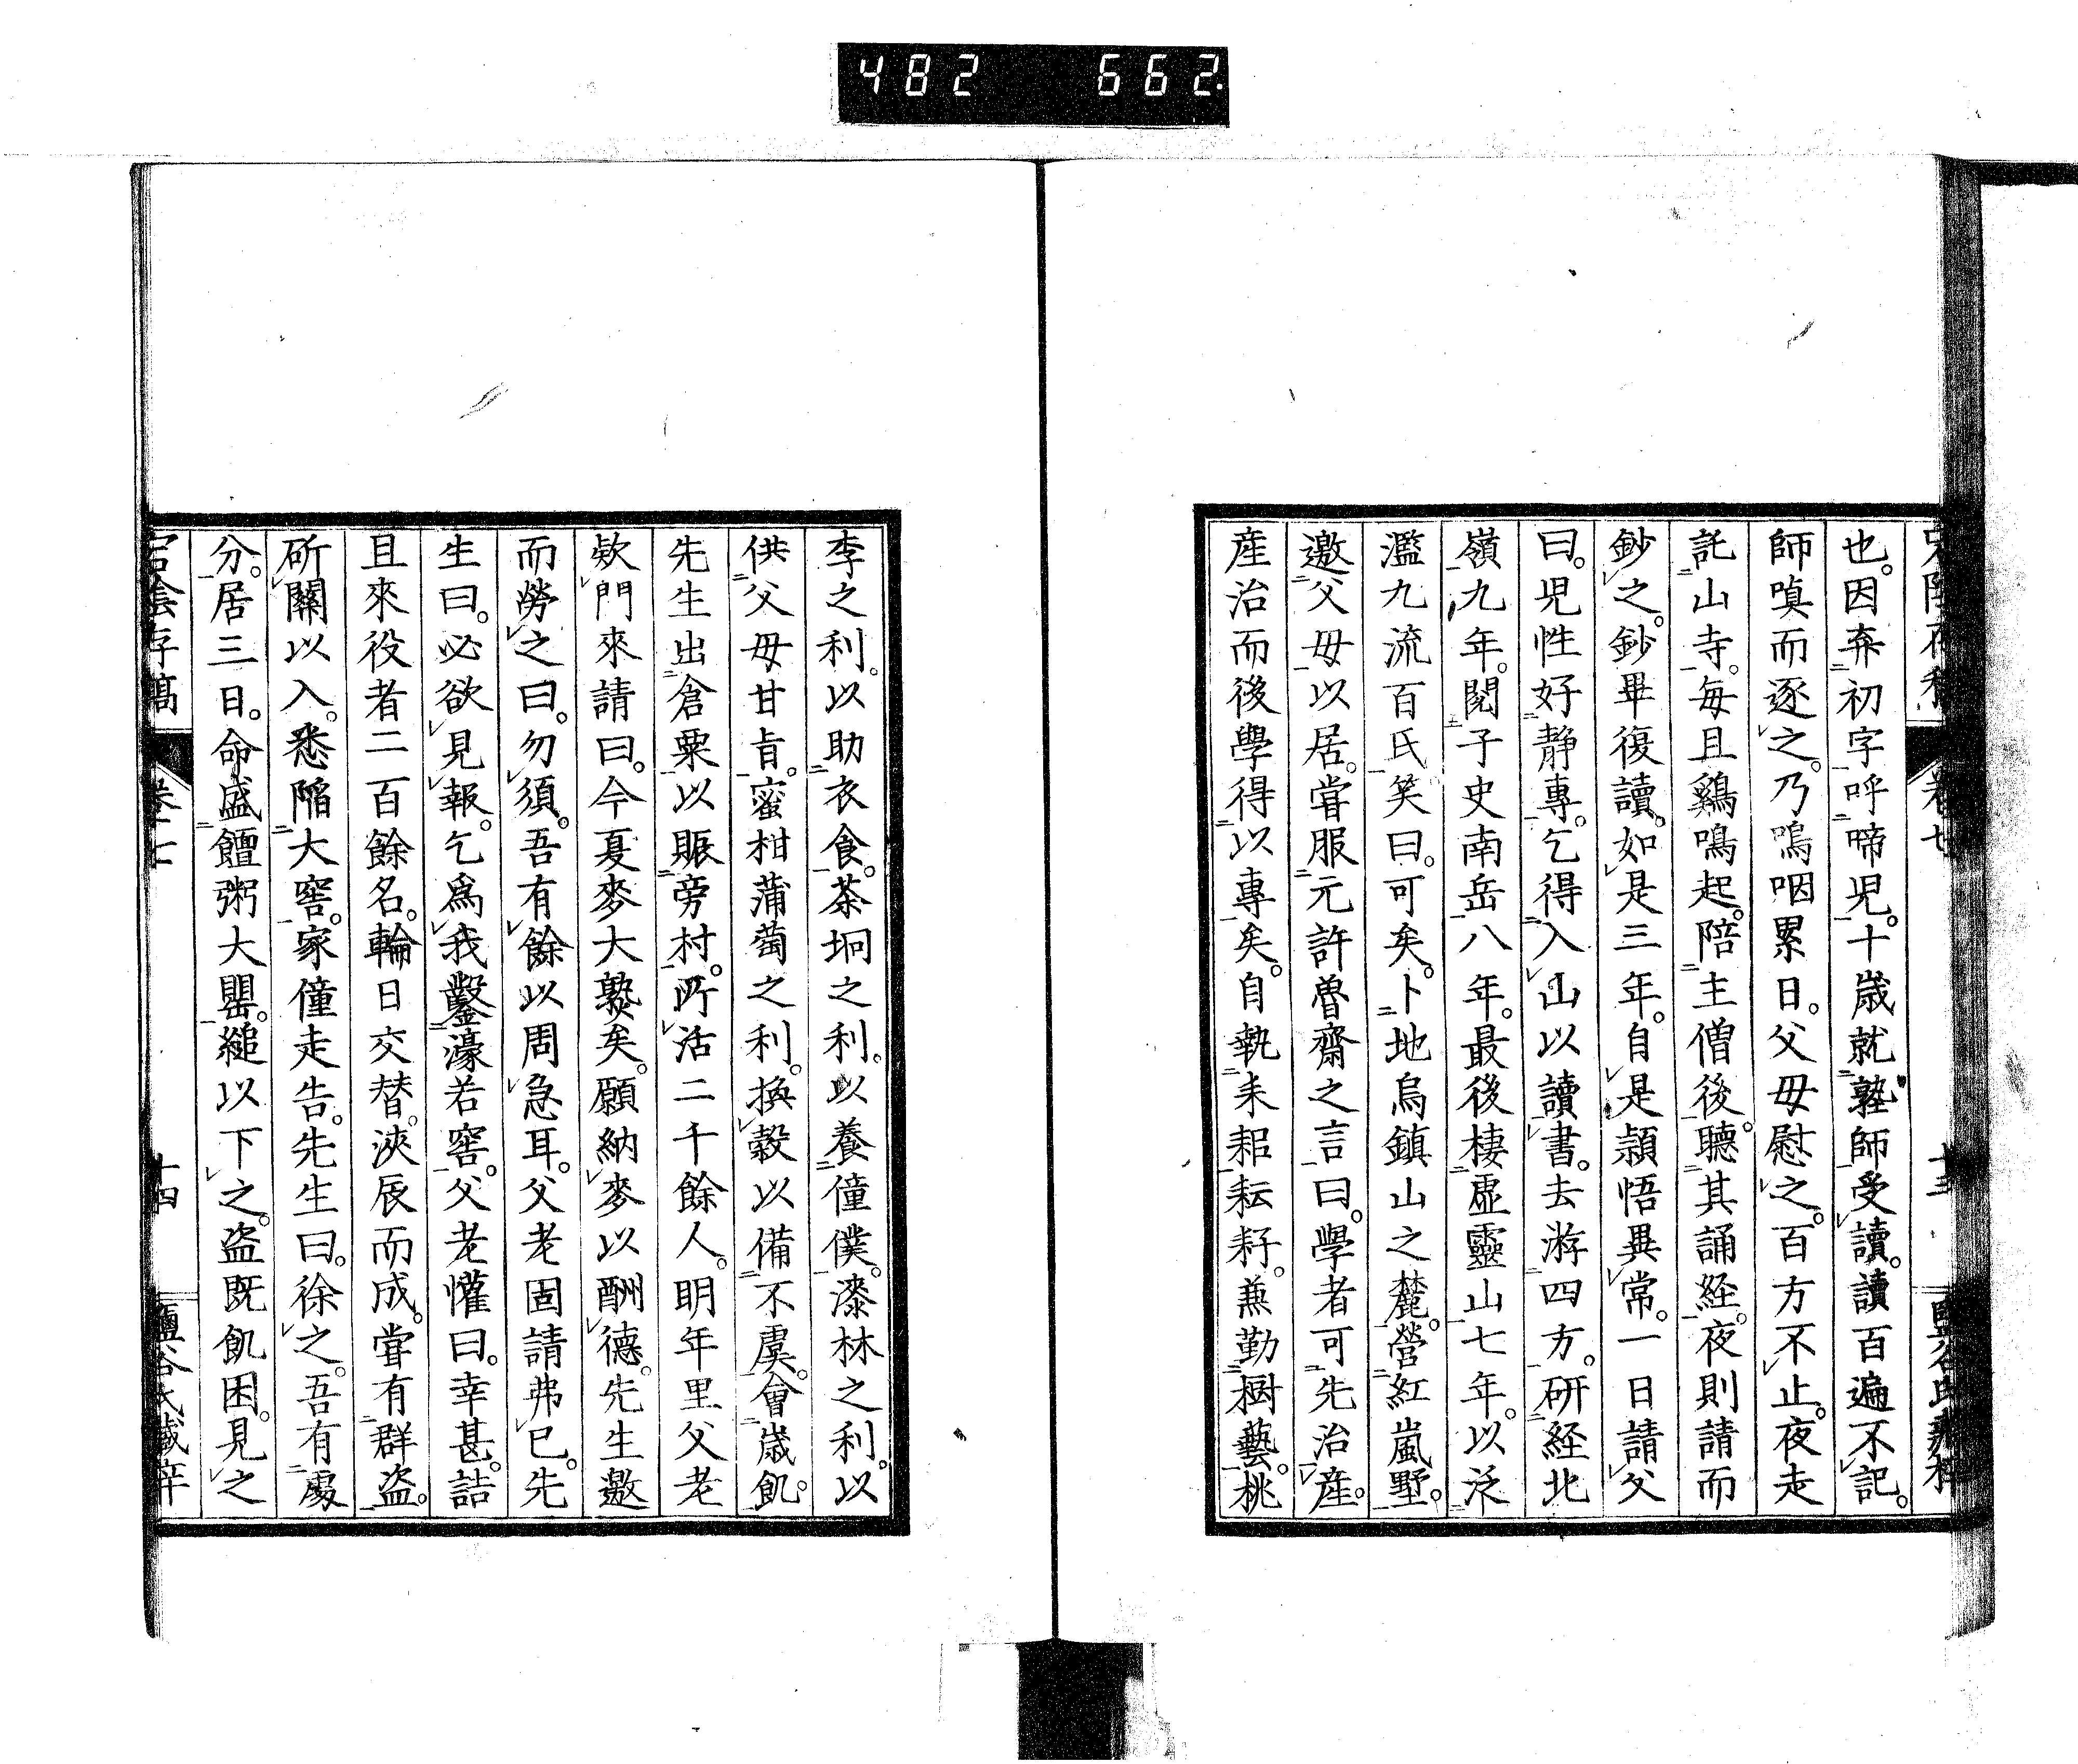 482 662
也。因弃初字呼啼児。十歳就塾師受讀。讀百遍不記。
師嗔而逐之。乃嗚咽累日。父毋慰之。百方不止。夜走
託山寺。每且鷄鳴起。陪主僧後。聽其誦経。夜則請而
鈔之。鈔畢復讀。如是三年。自是頴悟異常。一日請父
曰。児性好静專。乞得入山以讀書。去游四方。研経北
嶺九年。閱子史南岳八年。最後棲虛靈山七年。以泛
濫九流百氏。笑曰。可矣。卜地烏鎮山之麓。營紅嵐墅。
邀父毋以居。甞服元許魯齋之言曰。學者可先治產。
產治而後學得以專矣。自執耒耜耘耔。兼勤樹藝。桃
李之利。以助衣食。茶垌之利。以養僮僕。漆林之利。以
供父毋甘旨。蜜柑蒲萄之利。換穀以備不虞。會歳飢。
先生出倉粟以賑旁村。所活二千餘人。明年里父老
欵門來請曰。今夏麥大熟矣。願納麥以酬德。先生邀
而勞之曰。勿須。吾有餘以周急耳。父老固請弗已。先
生曰。必欲見報。乞爲我鑿濠若窖。父老懽曰。幸甚。詰
且來役者二百餘名。輪日交替。浹辰而成。甞有群盜。
斫關以入。悉陷大窖。家僮走告。先生曰。徐之。吾有處
分。居三日。命盛饘粥大罌。縋以下之。盜既飢困。見之
宕陰存稿 卷十七 十四 鹽谷氏藏梓